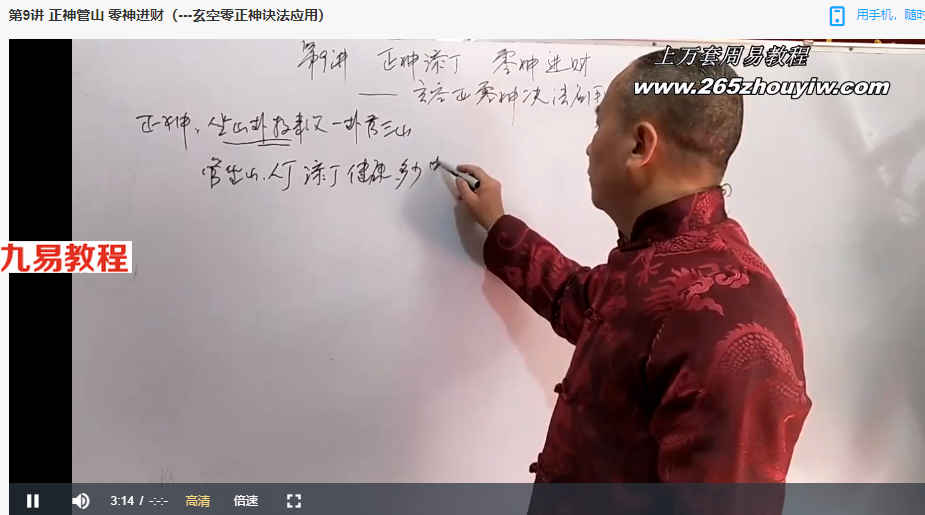 第9讲 正神管山 零神进财（---玄空零正神诀法应用）
用手机，随时
上万套周易教程
www.265zhouyiw.com
第9讲 正神添丁 零神进财
—— 玄空正零神决法应用
正神、坐山卦 一卦管三山
管坐山、人丁 添丁 健康 多少
九易教程
3:14 / -:-:-
高清
倍速